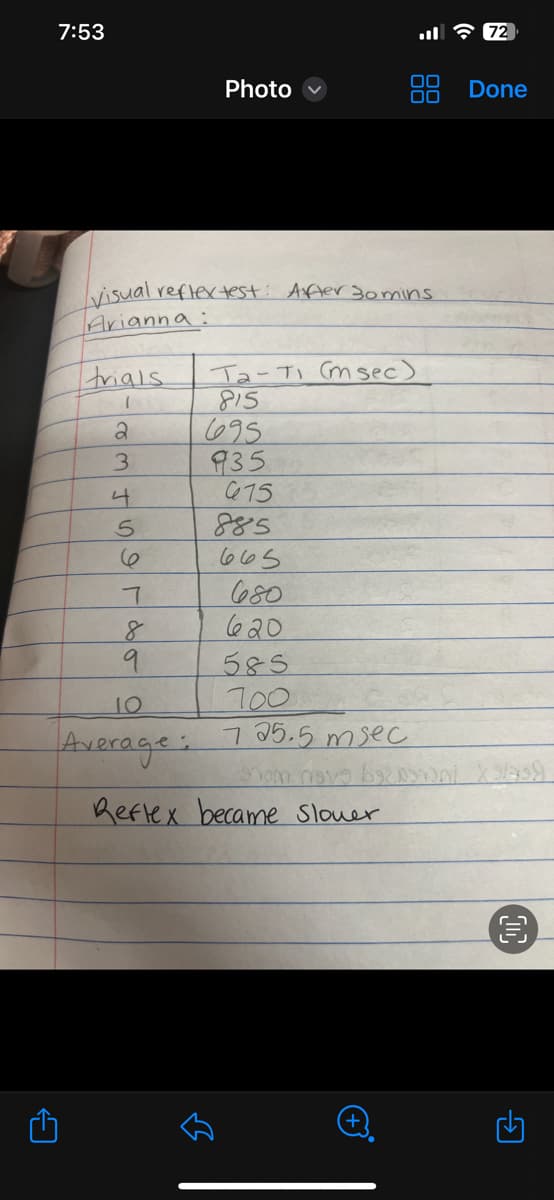 7:53
72
Photo
Done
visual reflex test: After 30 mins
Arianna:
trials T2-T1 (msec)
1 815
2 695
3 935
4 675
5 885
6 665
7 680
8 620
9 585
10 700
Average: 725.5 msec
Reflex increased even more
Reflex became slower